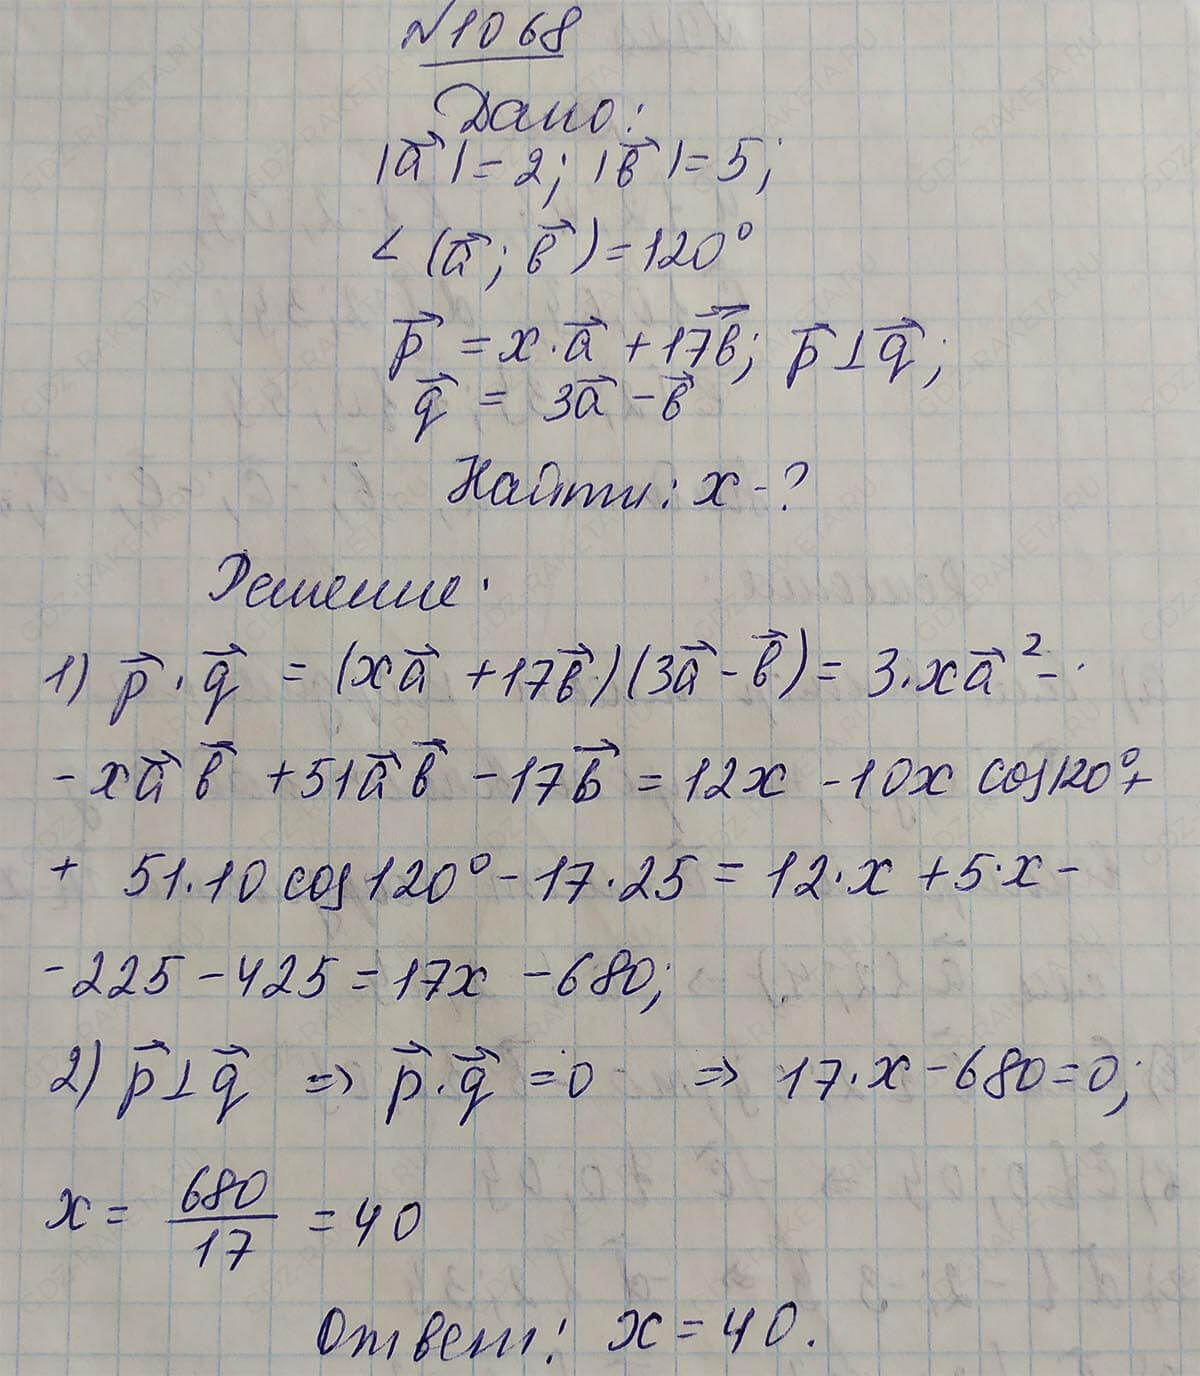 №1068
Дано:
|a⃗| = 2; |b⃗| = 5;
∠ (a⃗; b⃗) = 120°
p⃗ = x·a⃗ + 17b⃗; p⃗ ⊥ q⃗;
q⃗ = 3a⃗ - b⃗
Найти: x - ?
Решение.
1) p⃗ · q⃗ = (xa⃗ + 17b⃗)(3a⃗ - b⃗) = 3·xa⃗² -
- xa⃗ b⃗ + 51a⃗ b⃗ - 17b⃗ = 12x - 10x cos120° +
+ 51·10 cos120° - 17·25 = 12·x + 5·x -
- 225 - 425 = 17x - 680;
2) p⃗ ⊥ q⃗ => p⃗ · q⃗ = 0 => 17·x - 680 = 0;
x = 680/17 = 40
Ответ: x = 40.
GDZ-RAKETA.RU